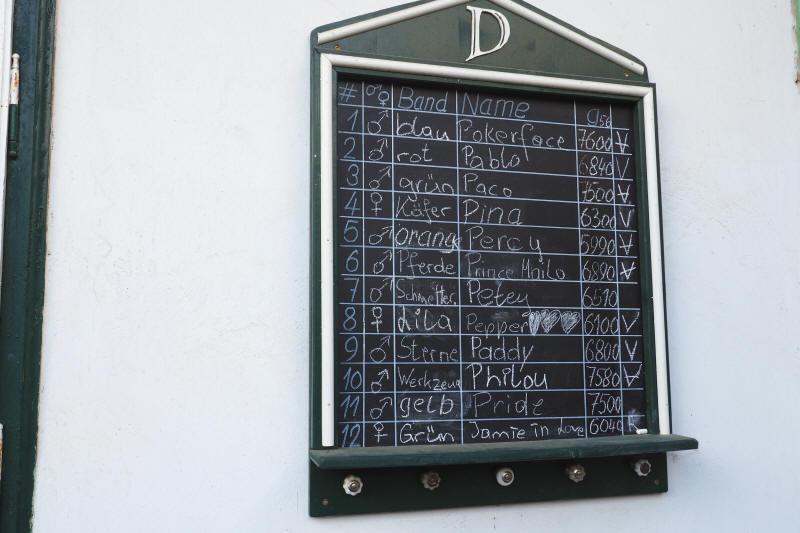 D
# ♂♀ Band Name
1 ♂ blau Pokerface 7600 V
2 ♂ rot Pablo 6840 V
3 ♂ grün Paco 7500 V
4 ♀ Käfer Dina 6300 V
5 ♂ orange Percy 5990 V
6 ♂ Pferde Prince Mailo 6890 V
7 ♂ Schmetter. Petey 6510
8 ♀ Lila Pepper 6100 V
9 ♂ Sterne Paddy 6800 V
10 ♂ Werkzeug Philou 7580 V
11 ♂ gelb Pride 7500
12 ♀ Grün Jamie in Love 6040